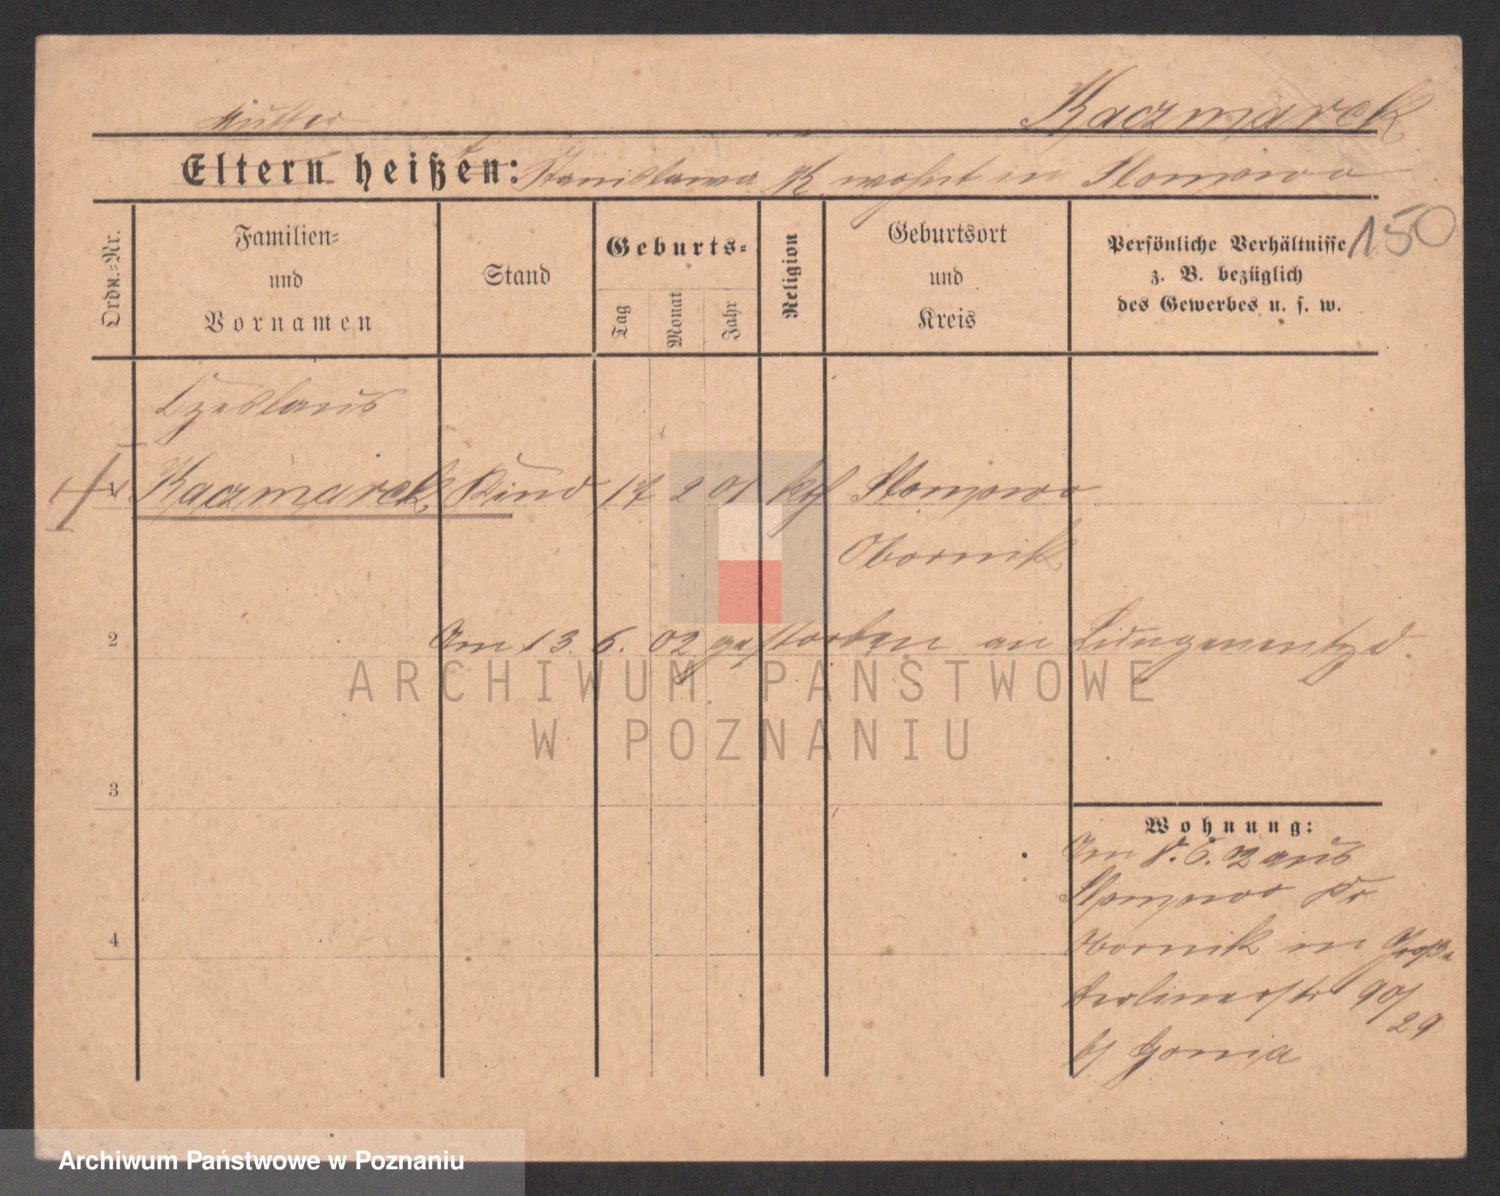 Kaczmarek
Mutter
Eltern heißen: Stanislawa K wohnt in Slomowo
150
Ordn.-Nr.
Familien-
und
Vornamen
Stand
Geburts-
Tag
Monat
Jahr
Religion
Geburtsort
und
Kreis
Persönliche Verhältnisse
z. B. bezüglich
des Gewerbes u. s. w.
Czeslaus
Kaczmarek Kind 17 2 01 kth Slomowo
Obornik
2
Am 13. 6. 02 gestorben an Lungenentzd.
3
Wohnung:
Am 8. 6. 02 aus
Slomowo Kr
4
Obornik in Große
Berlinerstr 90/
29
bj Gonia
ARCHIWUM PAŃSTWOWE
W POZNANIU
Archiwum Państwowe w Poznaniu